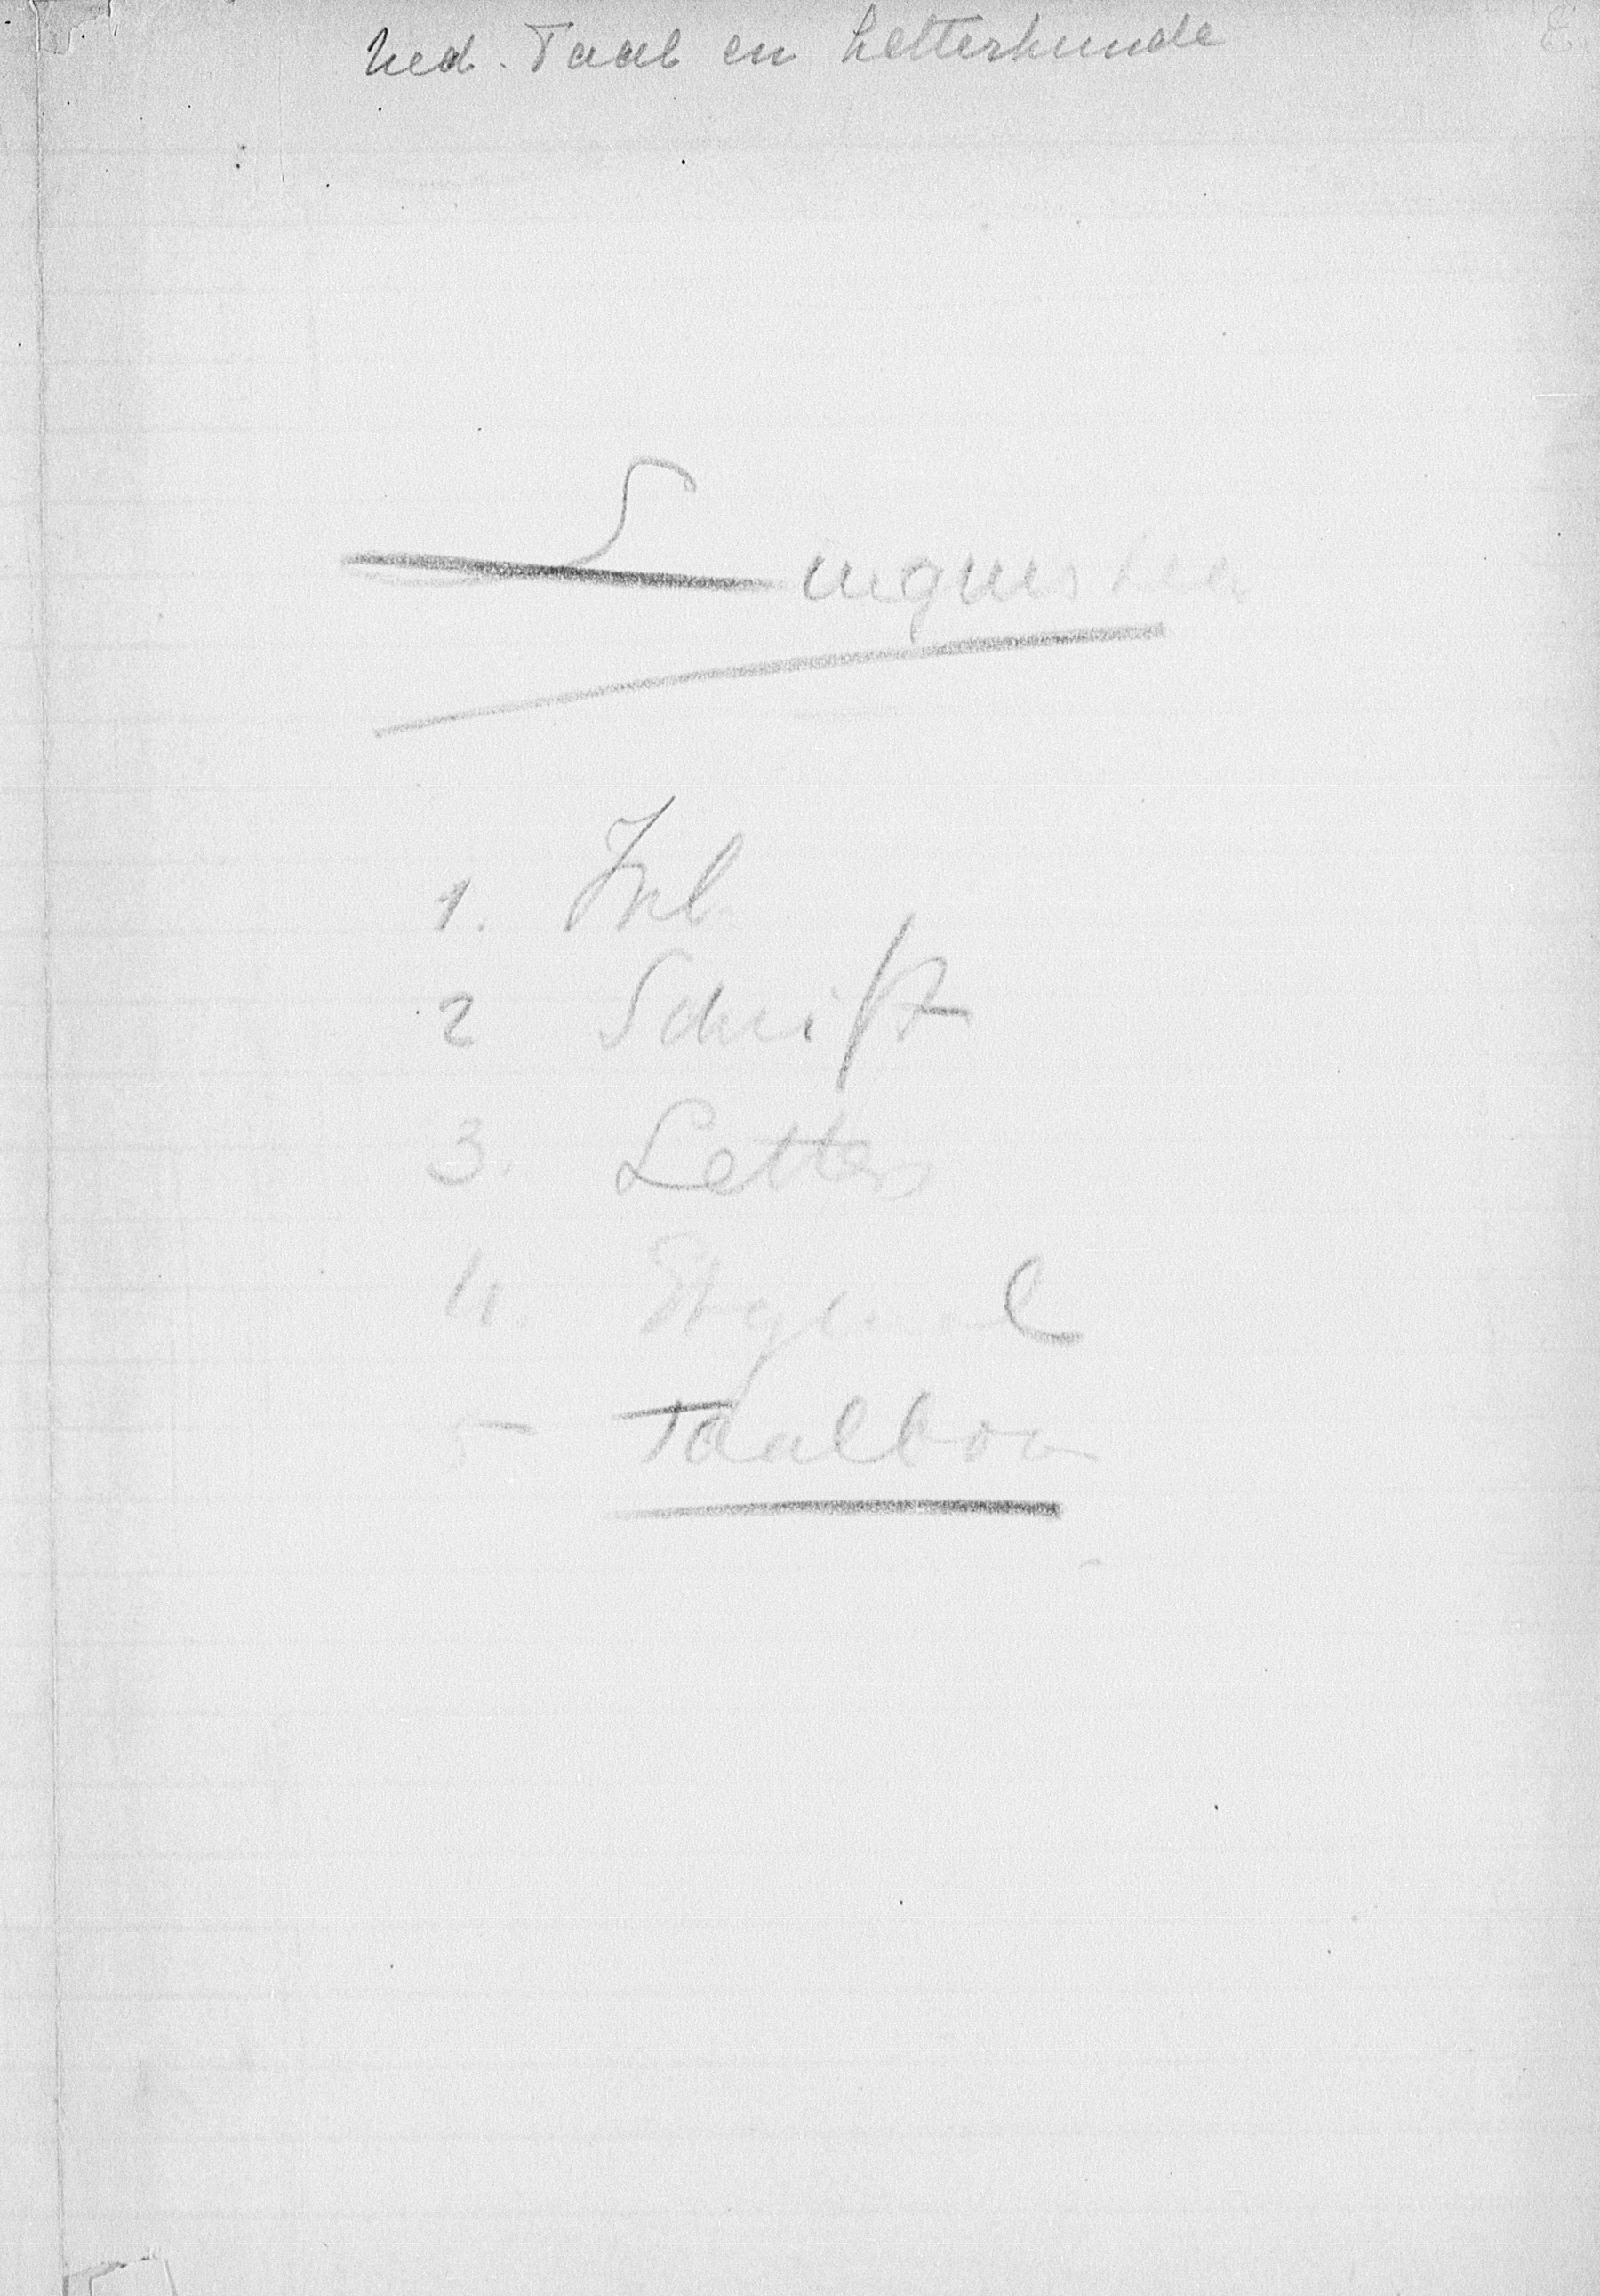 Ned. Taal en Letterkunde
Linguistica
1. Inl.
2 Schrift
3. Letters
4. Etymol
5 Taalbou